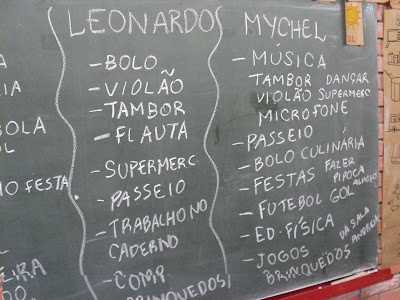 LEONARDO
- BOLO
- VIOLÃO
- TAMBOR
- FLAUTA
- SUPERMERC
- PASSEIO
- TRABALHO NO
CADERNO
- COMP
BRINQUEDOS
MYCHEL
- MÚSICA
TAMBOR DANÇAR
VIOLÃO SUPERMERC.
MICROFONE
- PASSEIO
- BOLO CULINÁRIA
- FESTAS FAZER
PIPOCA
- FUTEBOL GOL ALMOÇO
- ED. FÍSICA DA SALA
ANDREIA
- JOGOS
BRINQUEDOS
BOLA
OL
NO FESTA
EIRA
DO